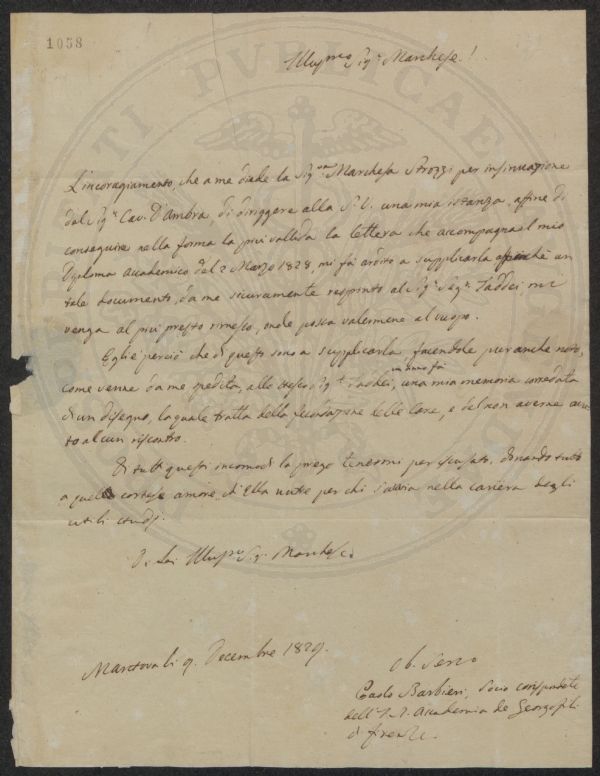 1058
Illus.mo Sig.r Marchese!
L'incoragiamento, che a me diede la Sig.ra Marchesa Strozzi per insinuazione
del Sig.r Cav. D'Ambra, di diriggere alla S. V. una mia istanza, affine di
conseguire nella forma la più valida la lettera che accompagna il mio
Diploma Academico del 2 Marzo 1828, mi fà ardito a supplicarla affinchè un
tale documento, da me sicuramente respinto al Sig.r Seg.o Taddei, mi
venga al più presto rimesso, onde possa valermene al uopo.
Egli è perciò che di questo sono a supplicarla, facendole pur anche noto,
come venne da me spedita, allo stesso Sig.r Taddei, un anno fà, una mia memoria corredata
di un disegno, la quale tratta della fecondazione delle Care, e del non averne avu-
to alcun riscontro.
Di tutti questi incomodi la prego tenermi per iscusato, donando tutto
a quel cortese amore, di Ella nutre per chi s'avvia nella cariera degli
utili studj.
Di Lei Illus.mo Sig.r Marchese
Mantova li 9. Decembre 1829.
Ob. Servo
Paolo Barbieri, Socio corrispondente
dell'I. R. Academia de Georgofili
di Firenze.